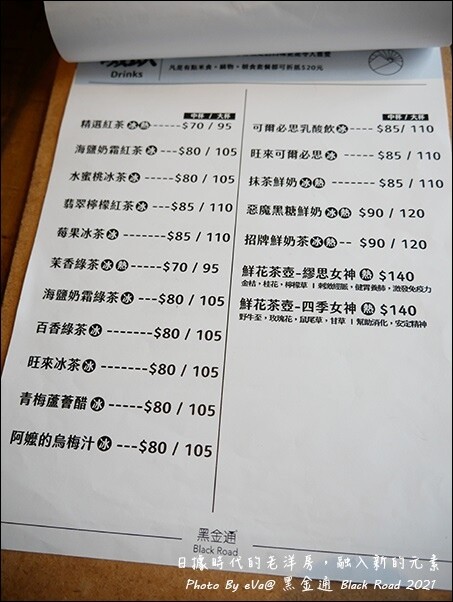 Drinks
凡是有點米食，鍋物，輕食套餐都可折抵$20元
中杯 / 大杯
精選紅茶 冰 熱 ------$70 / 95
海鹽奶霜紅茶 冰 ---$80 / 105
水蜜桃冰茶 冰 -----$80 / 105
翡翠檸檬紅茶 冰 ---$85 / 110
莓果冰茶 冰 -------$85 / 110
茉香綠茶 冰 熱 -----$70 / 95
海鹽奶霜綠茶 冰 ---$80 / 105
百香綠茶 冰 -------$80 / 105
旺來冰茶 冰 -------$80 / 105
青梅蘆薈醋 冰 -----$80 / 105
阿嬤的烏梅汁 冰 ---$80 / 105
中杯 / 大杯
可爾必思乳酸飲 冰 ---$85/ 110
旺來可爾必思 冰 -----$85/ 110
抹茶鮮奶 冰 熱 -------$85 / 110
惡魔黑糖鮮奶 冰 熱 $90 / 120
招牌鮮奶茶 冰 熱 -- $90 / 120
鮮花茶壺-繆思女神 熱 $140
金桔，桂花，檸檬草 I 刺激經脈，健胃養肺，激發免疫力
鮮花茶壺-四季女神 熱 $140
野牛至，玫瑰花，鼠尾草，甘草 I 幫助消化，安定精神
黑金通
Black Road
日據時代的老洋房，融入新的元素
Photo By eVa@ 黑金通 Black Road 2021